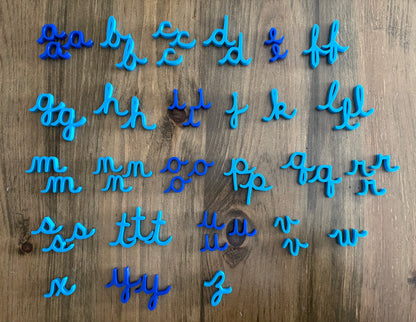 aaa bb ccc dd ee ff
gg hh iii j k lll
mm nnn ooo pp qq rrr
ssss ttt uuu vv w
x yy z